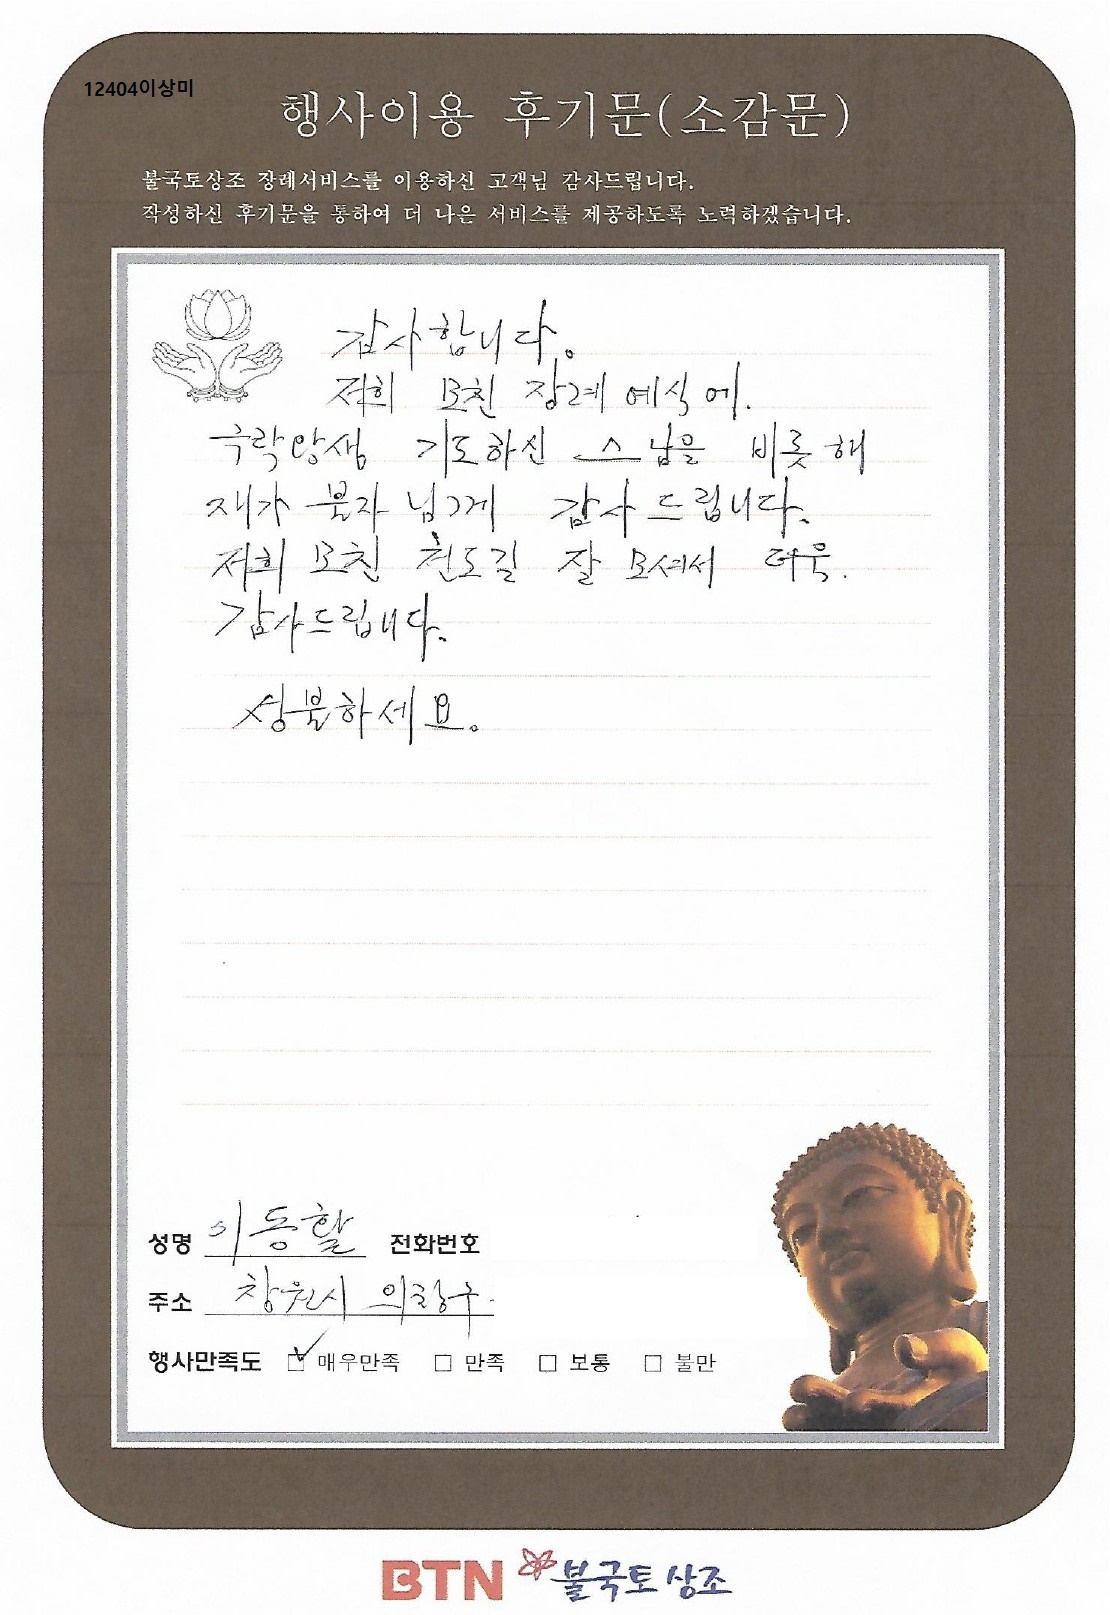 12404이상미
행사이용 후기문(소감문)
불국토상조 장례서비스를 이용하신 고객님 감사드립니다.
작성하신 후기문을 통하여 더 나은 서비스를 제공하도록 노력하겠습니다.
감사합니다.
저희 모친 장례 예식에.
극락왕생 기도하신 스님을 비롯해
재가 불자 님께 감사드립니다.
저희 모친 천도길 잘 모셔서 더욱.
감사드립니다.
성불하세요.
성명 이동활 전화번호
주소 창원시 의창구.
행사만족도 ☑ 매우만족 □ 만족 □ 보통 □ 불만
BTN 불국토상조